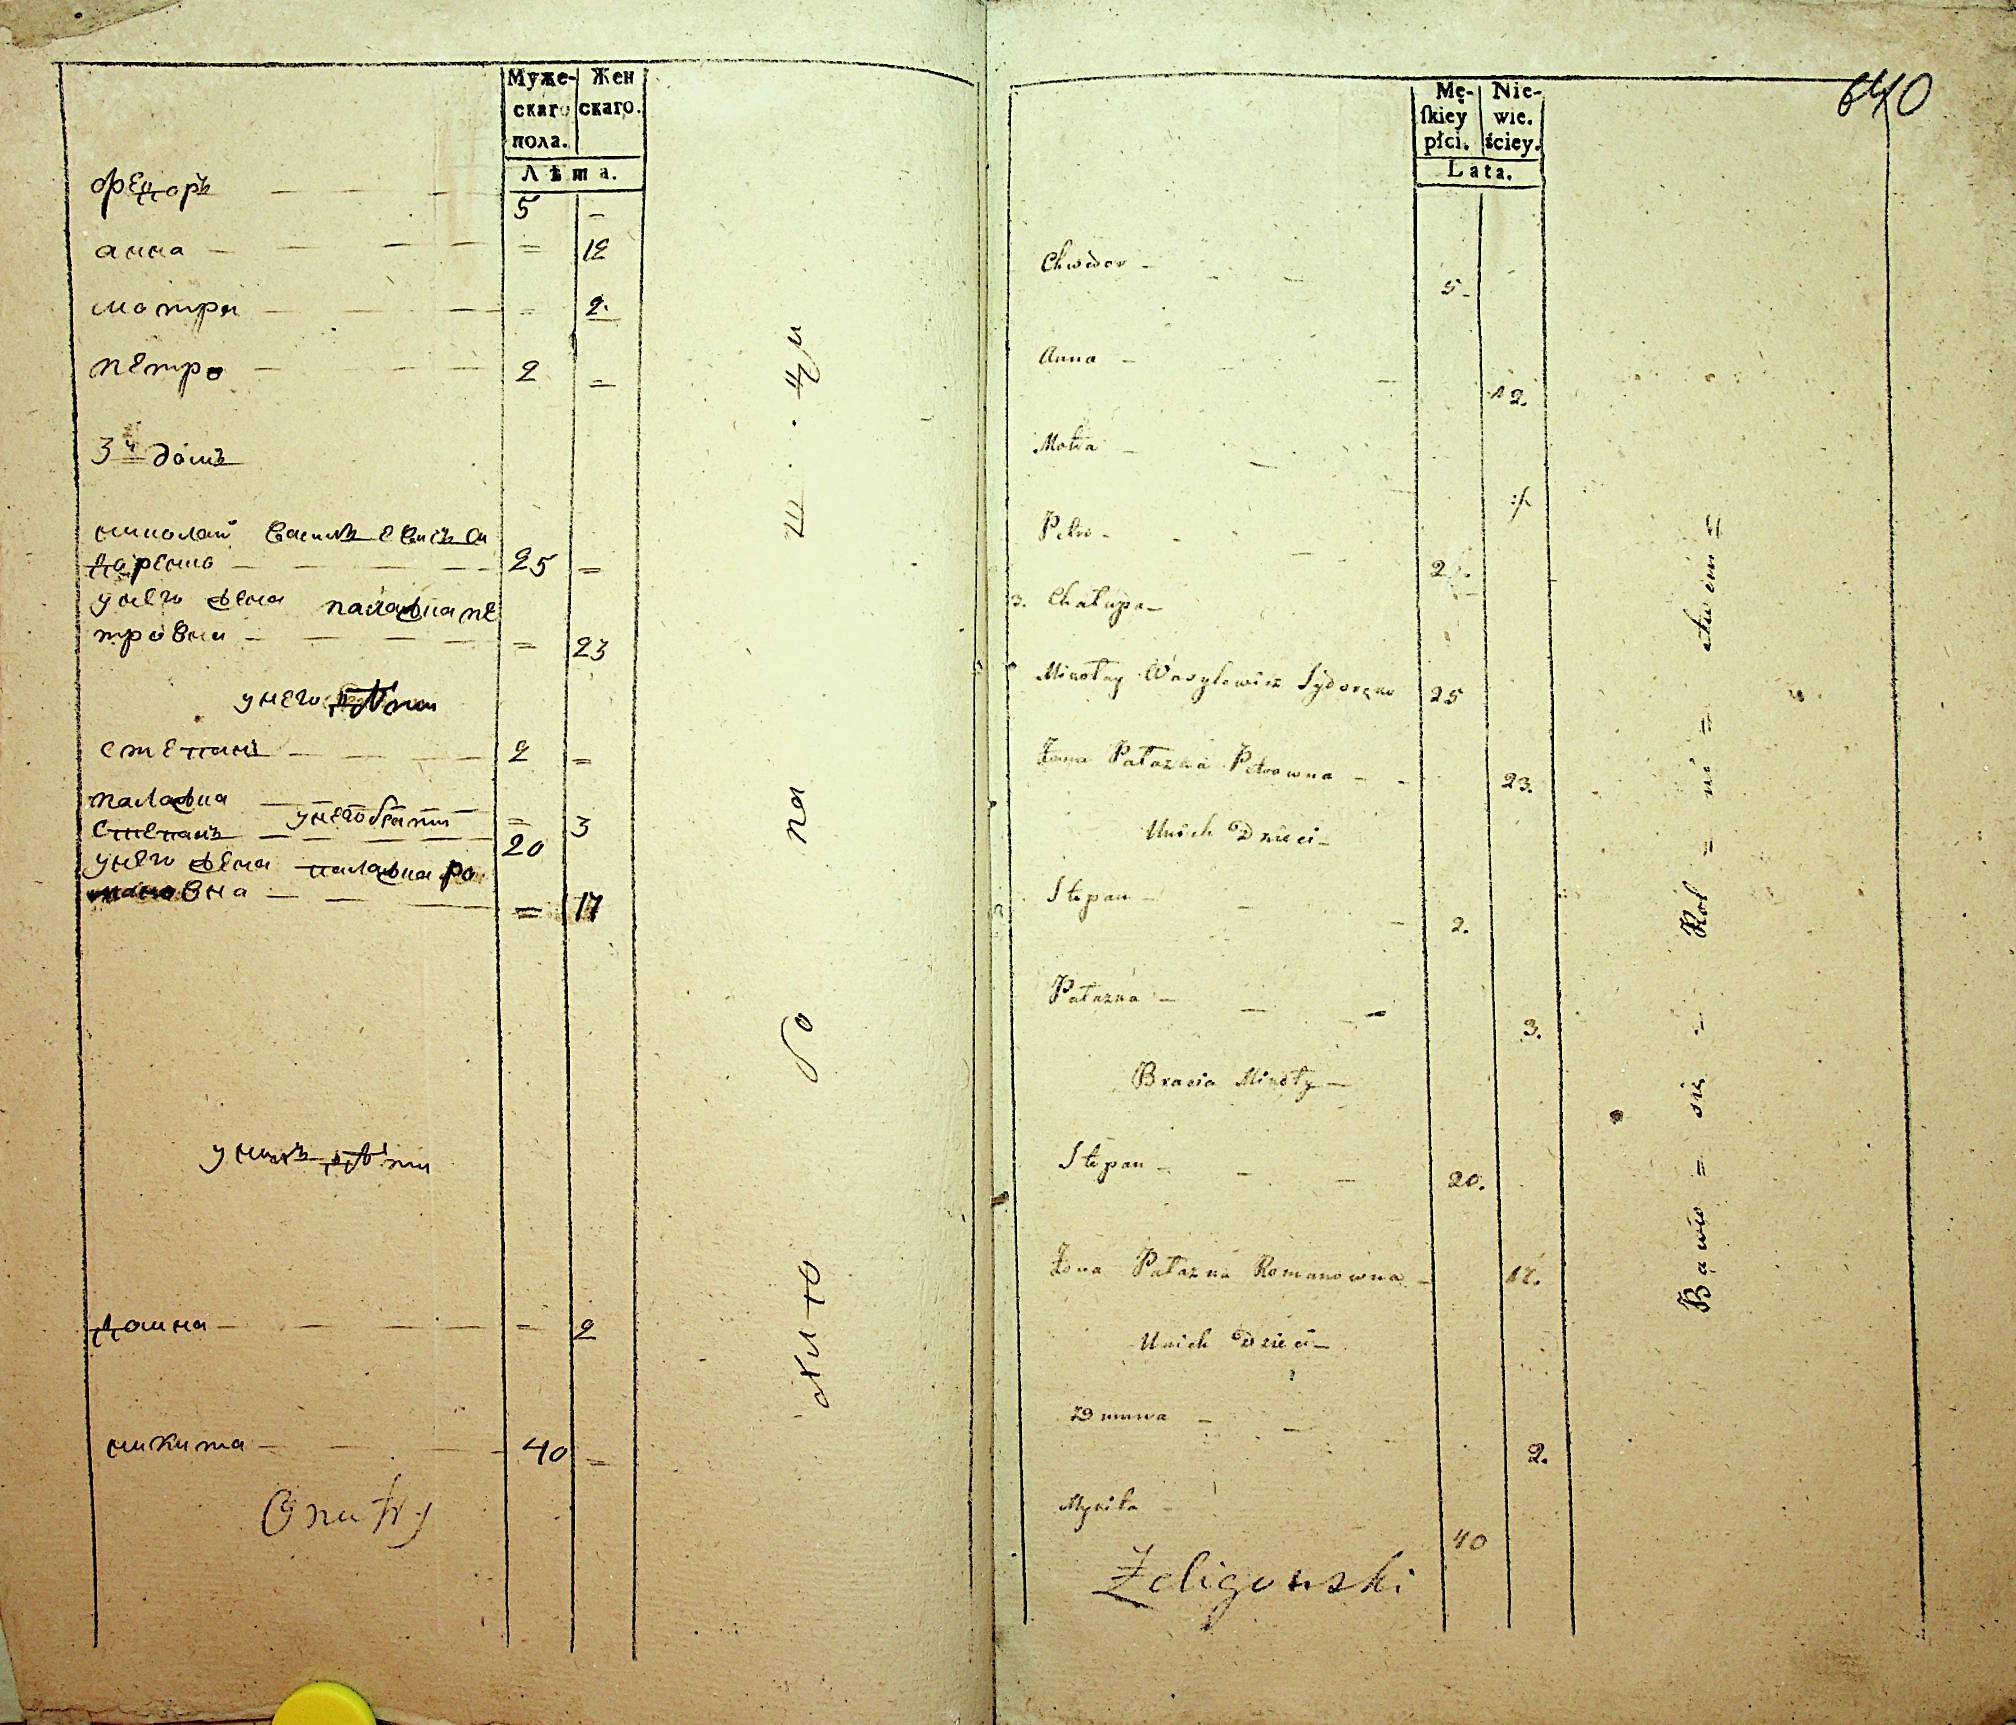 Муже-
скаго
пола.
Жен
скаго.
Лѣта.
федоръ — — — 5 —
анна — — — — = 12
мотря — — — = 2.
петро — — — 2 =
3й домъ
николай василевичъ си
доренко — — — — 25 =
унего жена палажка пе
тровна — — — — = 23
унего дѣти
степанъ — — — 2 =
палажка — = 3
унего братъ
степанъ — — — 20
унего жена палажка ро
мановна — — — = 17
унихъ дѣти
домна — — — — = 2
никита — — — 40 =
жито
бо
па
640
Mę-
ſkiey
płci.
Nie-
wie.
ściey.
Lata.
Chwedor — — — 5 -
Anna — — — 12.
Motra — —
Petro - - — 2.
3. Chałupa —
Mikołay Wasylewicz Sydoręko 25
Żona Pałażka Petrowna - - 23.
Unich Dzieci —
Stepan — — — 2.
Pałazka — — — 3.
Bracia Mikoły —
Stepan — — — 20.
Żona Pałazka Romanowna — 17.
Unich Dzieci —
Domna — — 2.
Mykita — 40
Żeligowski
Bawio = się = Rol = ni = ctwem =